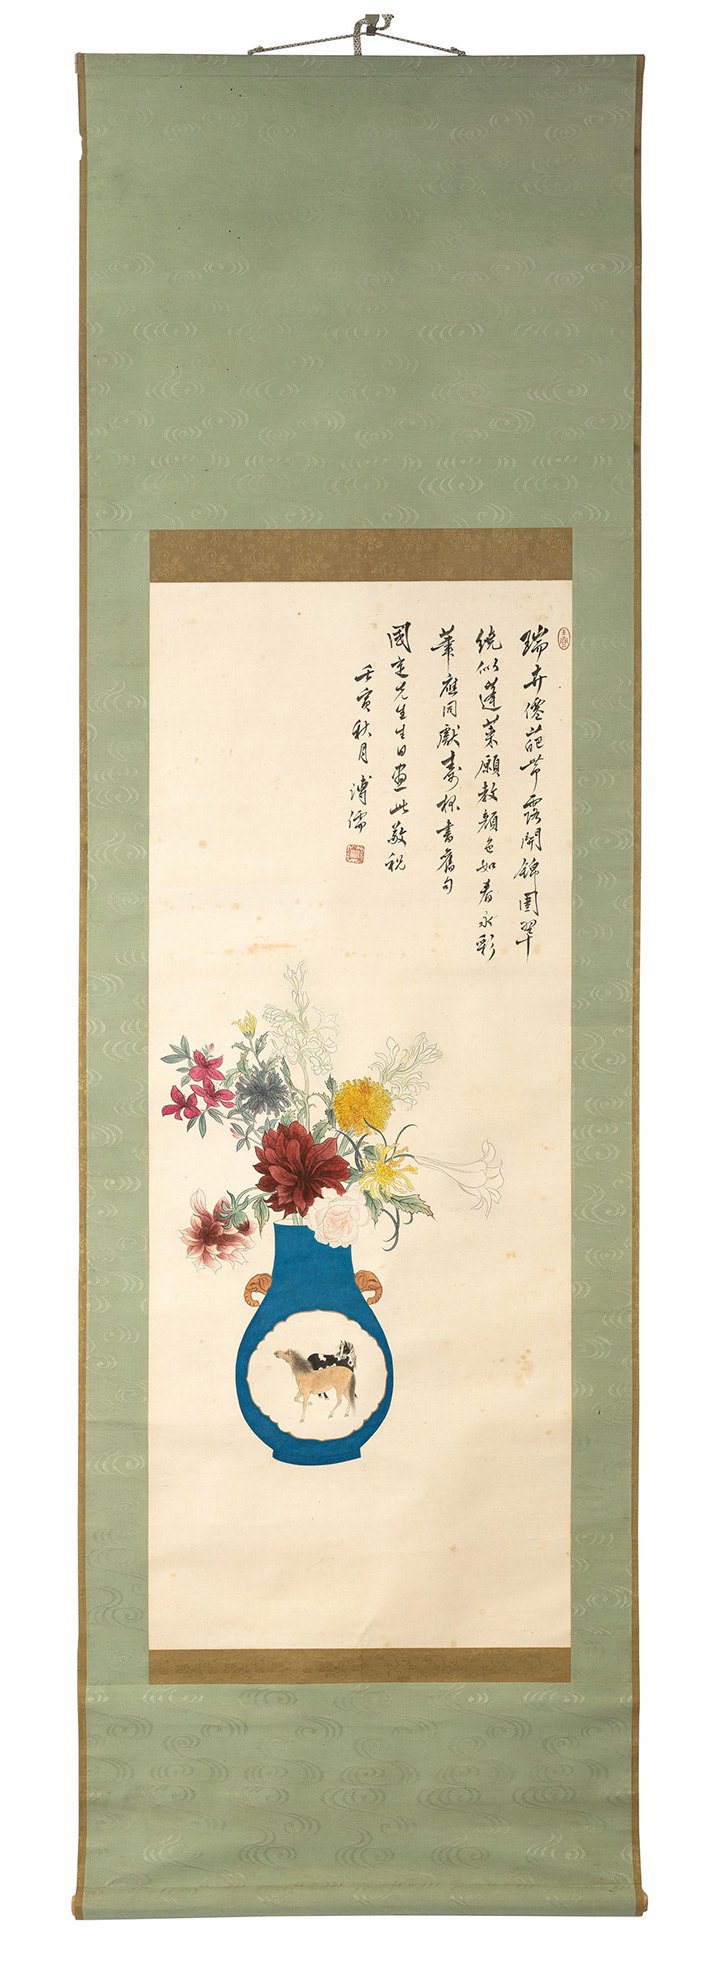 瑞卉僊葩帶露開錦圍翠
繞似蓬萊願教顏色如春永彩
筆應同獻壽杯書舊句
國定先生生日畫此敬祝
壬寅秋月溥儒